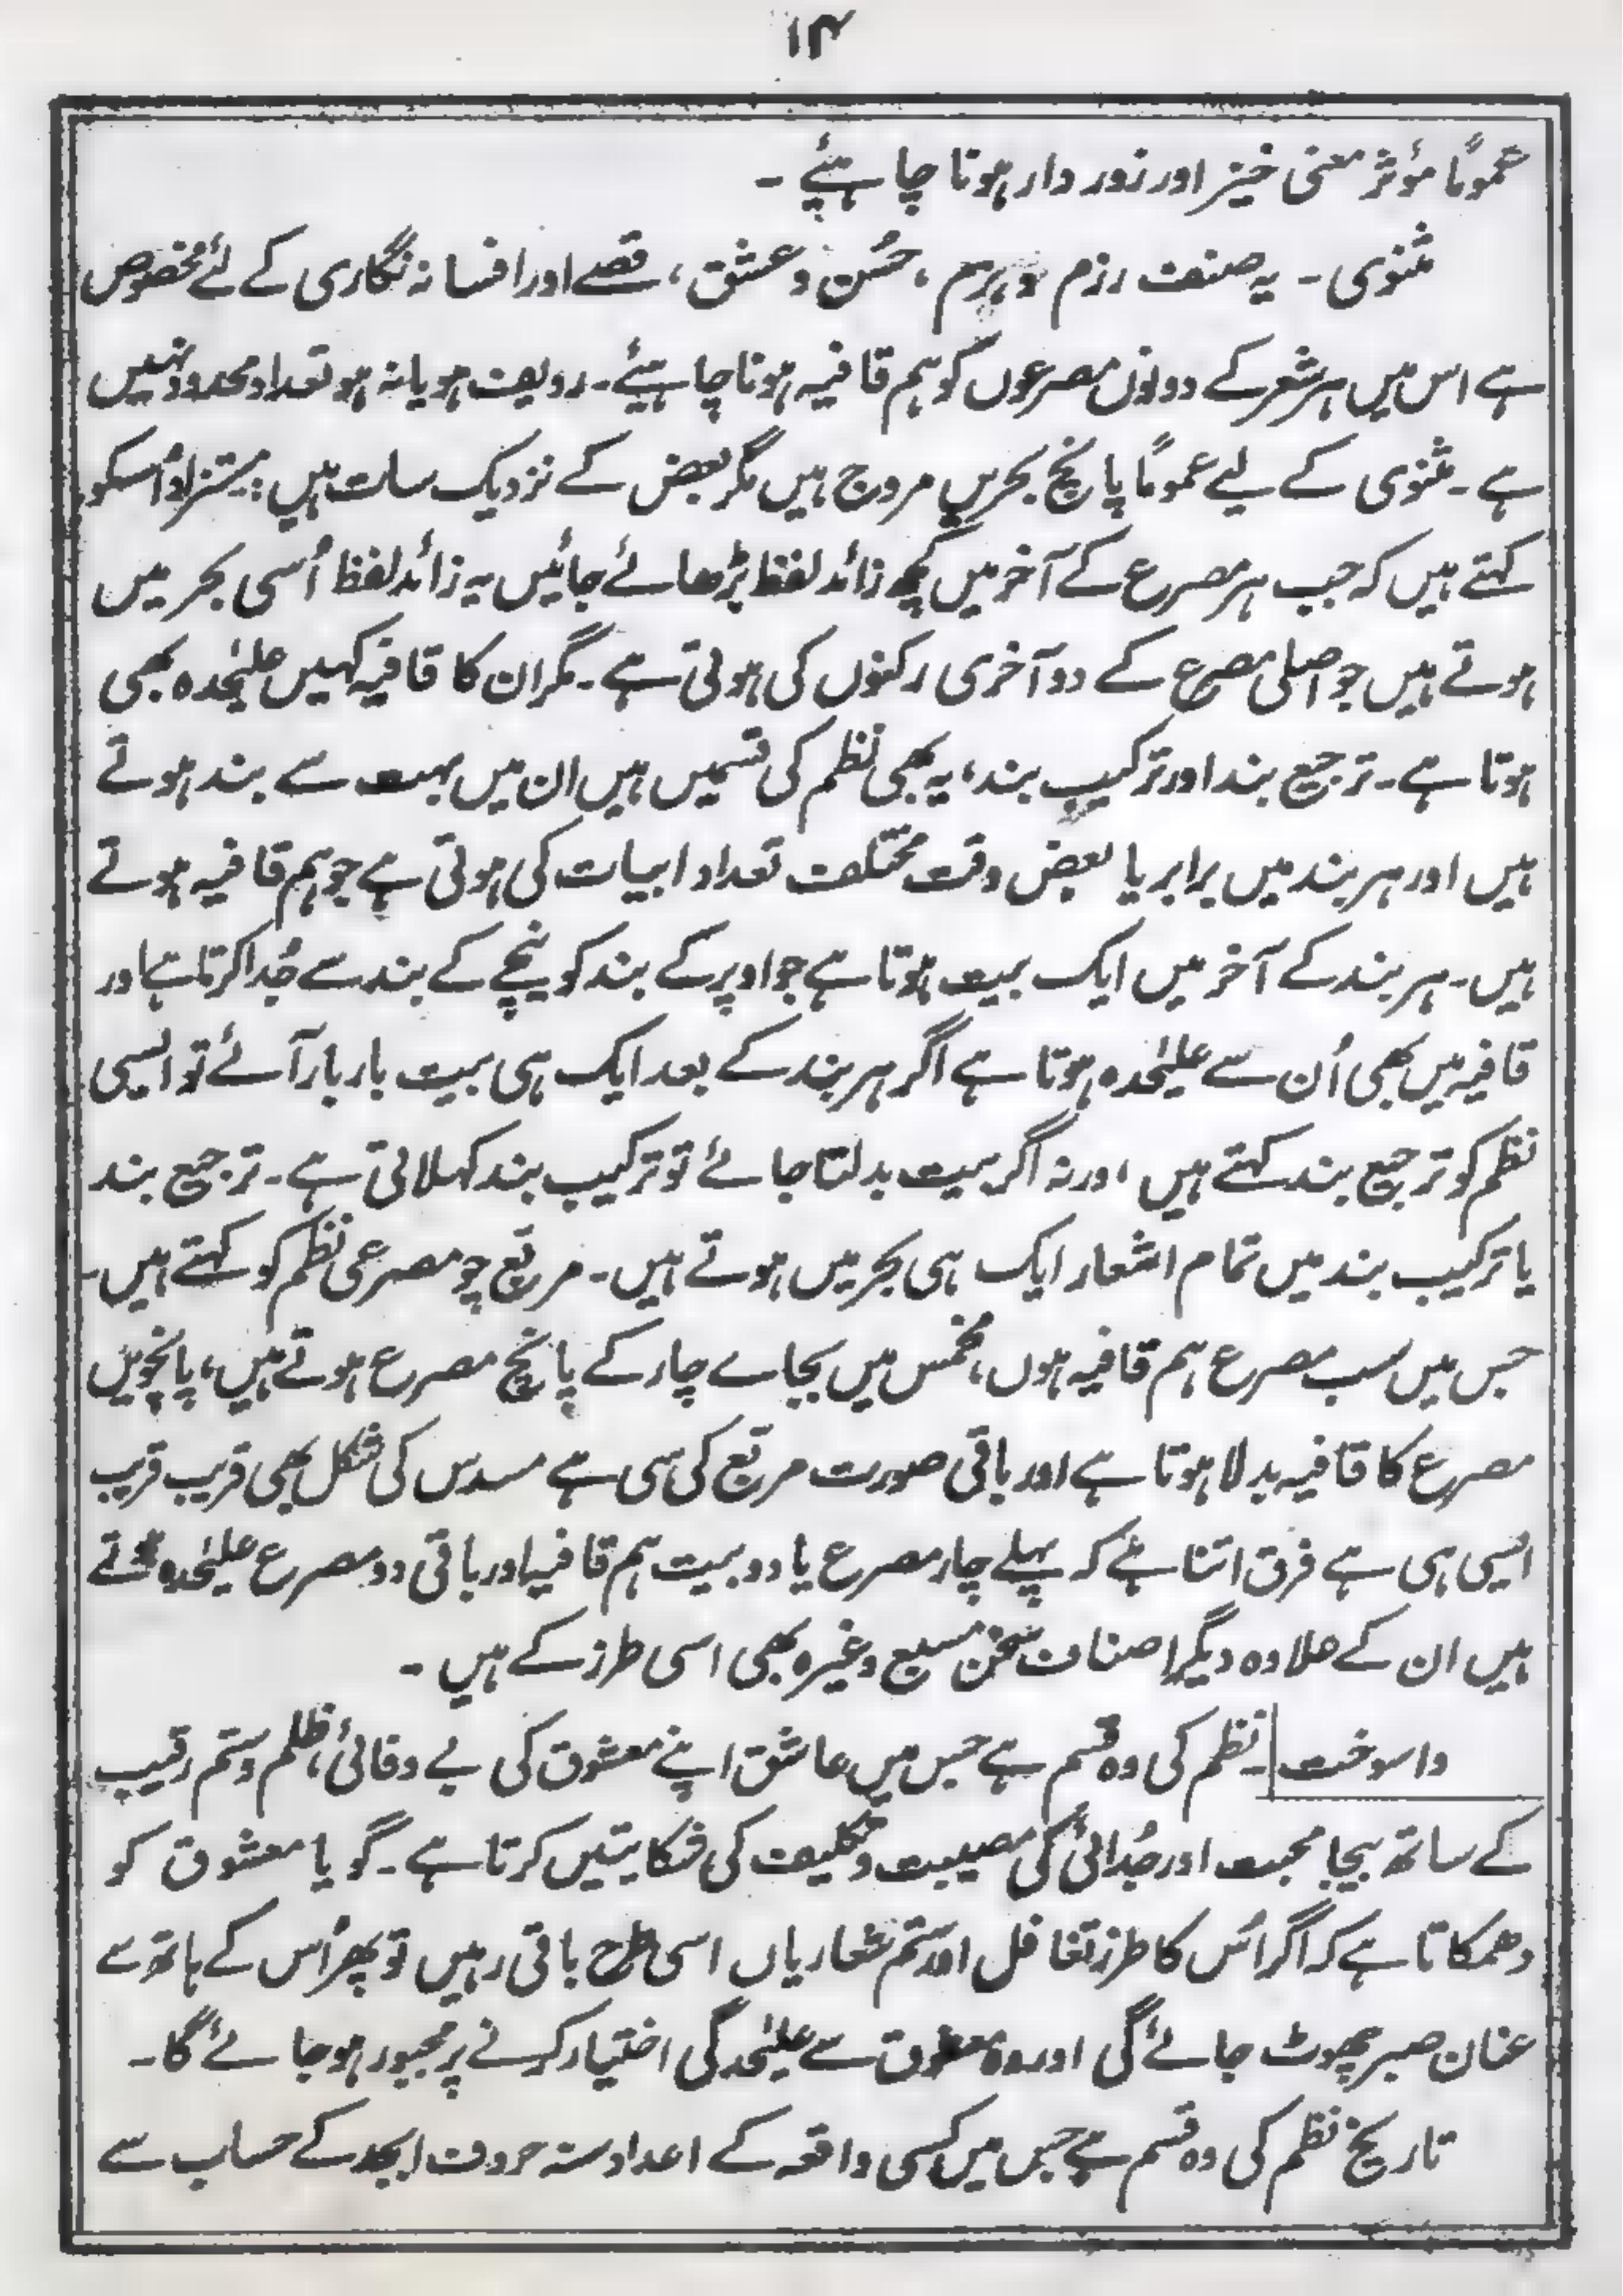 ۱۴
عموماً مؤثر معنی خیز اور زور دار ہونا چاہیئے ۔
مثنوی ۔ یہ صنف رزم و بزم ، حُسن و عشق ، قصے اور افسانہ نگاری کے لئے مخصوص
ہے اس میں ہر شعر کے دونوں مصرعوں کو ہم قافیہ ہونا چاہیئے ۔ ردیف ہو یا نہ ہو تعداد محدود نہیں
ہے ۔ مثنوی کے لیے عموماً پانچ بحریں مروج ہیں مگر بعض کے نزدیک سات ہیں : مستزاد اُسکو
کہتے ہیں کہ جب ہر مصرع کے آخر میں کچھ زائد لفظ بڑھائے جائیں یہ زائد لفظ اُسی بحر میں
ہوتے ہیں جو اصلی مصرع کے دو آخری رکنوں کی ہوتی ہے ۔ مگر ان کا قافیہ کہیں علیٰحدہ بھی
ہوتا ہے ۔ ترجیع بند اور ترکیب بند ، یہ بھی نظم کی قسمیں ہیں ان میں بہت سے بند ہوتے
ہیں اور ہر بند میں برابر یا بعض وقت مختلف تعداد ابیات کی ہوتی ہے جو ہم قافیہ ہوتے
ہیں ۔ ہر بند کے آخر میں ایک بیت ہوتا ہے جو اوپر کے بند کو نیچے کے بند سے جُدا کرتا ہے اور
قافیہ میں بھی اُن سے علیٰحدہ ہوتا ہے اگر ہر بند کے بعد ایک ہی بیت بار بار آئے تو ایسی
نظم کو ترجیع بند کہتے ہیں ، ورنہ اگر بیت بدلتا جائے تو ترکیب بند کہلاتی ہے ۔ ترجیع بند
یا ترکیب بند میں تمام اشعار ایک ہی بحر میں ہوتے ہیں ۔ مربع چو مصرعی نظم کو کہتے ہیں ۔
جس میں سب مصرع ہم قافیہ ہوں ، مخمس میں بجاے چار کے پانچ مصرع ہوتے ہیں ، پانچویں
مصرع کا قافیہ بدلا ہوتا ہے اور باقی صورت مربع کی سی ہے مسدس کی شکل بھی قریب قریب
ایسی ہی ہے فرق اتنا ہے کہ پہلے چار مصرع یا دو بیت ہم قافیہ اور باقی دو مصرع علیٰحدہ ہوتے
ہیں ان کے علاوہ دیگر اصناف سخن مسبع وغیرہ بھی اسی طرز کے ہیں ۔
واسوخت ۔ نظم کی وہ قسم ہے جس میں عاشق اپنے معشوق کی بے وفائی ، ظلم و ستم رقیب
کے ساتھ بیجا محبت اور جُدائی کی مصیبت و تکلیف کی شکایتیں کرتا ہے ۔ گویا معشوق کو
دھمکاتا ہے کہ اگر اُس کا طرز تغافل اور ستم شعاریاں اسی طرح باقی رہیں تو پھر اُس کے ہاتھ سے
عنان صبر چھوٹ جائے گی اور وہ معشوق سے علیٰحدگی اختیار کرنے پر مجبور ہو جائے گا ۔
تاریخ نظم کی وہ قسم ہے جس میں کسی واقعہ کے اعداد سنہ حروف ابجد کے حساب سے